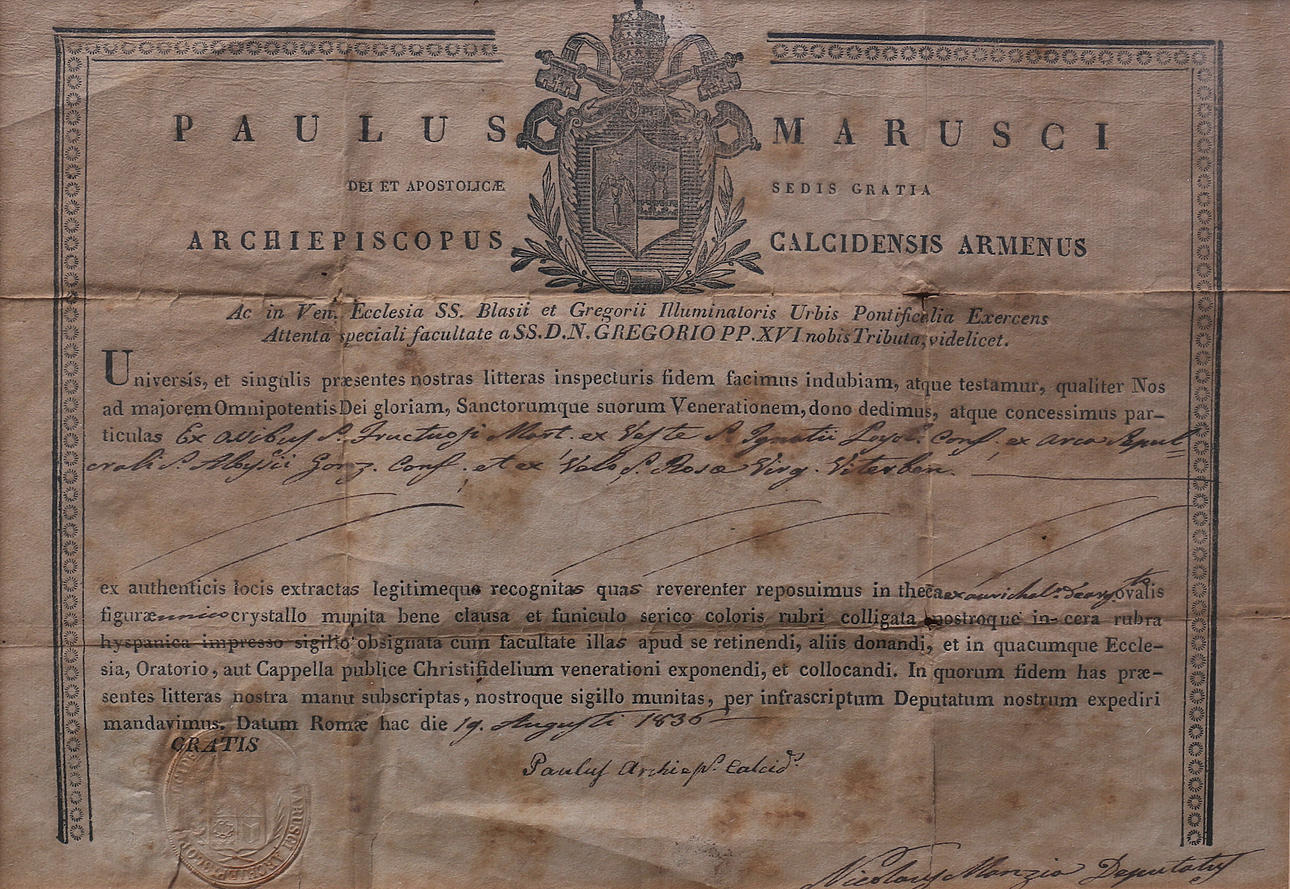 PAULUS MARUSCI
DEI ET APOSTOLICÆ SEDIS GRATIA
ARCHIEPISCOPUS CALCIDENSIS ARMENUS
Ac in Ven. Ecclesia SS. Blasii et Gregorii Illuminatoris Urbis Pontificalia Exercens
Attenta speciali facultate a SS.D.N. GREGORIO PP.XVI nobis Tributa, videlicet.
Universis, et singulis præsentes nostras litteras inspecturis fidem facimus indubiam, atque testamur, qualiter Nos
ad majorem Omnipotentis Dei gloriam, Sanctorumque suorum Venerationem, dono dedimus, atque concessimus par-
ticulas Ex ossibus S. Fructuosi Mart. ex Veste S. Ignatii Loyol. Conf. ex arca Sepul=
crali S. Aloysii Gonz. Conf. et ex Velo S. Rosæ Virg. Viterben.
ex authenticis locis extractas legitimeque recognitas quas reverenter reposuimus in theca ex aurichal. ovalis
figuræ unico crystallo munita bene clausa et funiculo serico coloris rubri colligata nostroque in cera rubra
hyspanica impresso sigillo obsignata cum facultate illas apud se retinendi, aliis donandi, et in quacumque Eccle-
sia, Oratorio, aut Cappella publice Christifidelium venerationi exponendi, et collocandi. In quorum fidem has præ-
sentes litteras nostra manu subscriptas, nostroque sigillo munitas, per infrascriptum Deputatum nostrum expediri
mandavimus. Datum Romæ hac die 19. Augusti 1836
GRATIS
Paulus Archiep. Calcid.
MARUSCI ARCHIEPISCOP
Nicolaus Manzia Deputatus